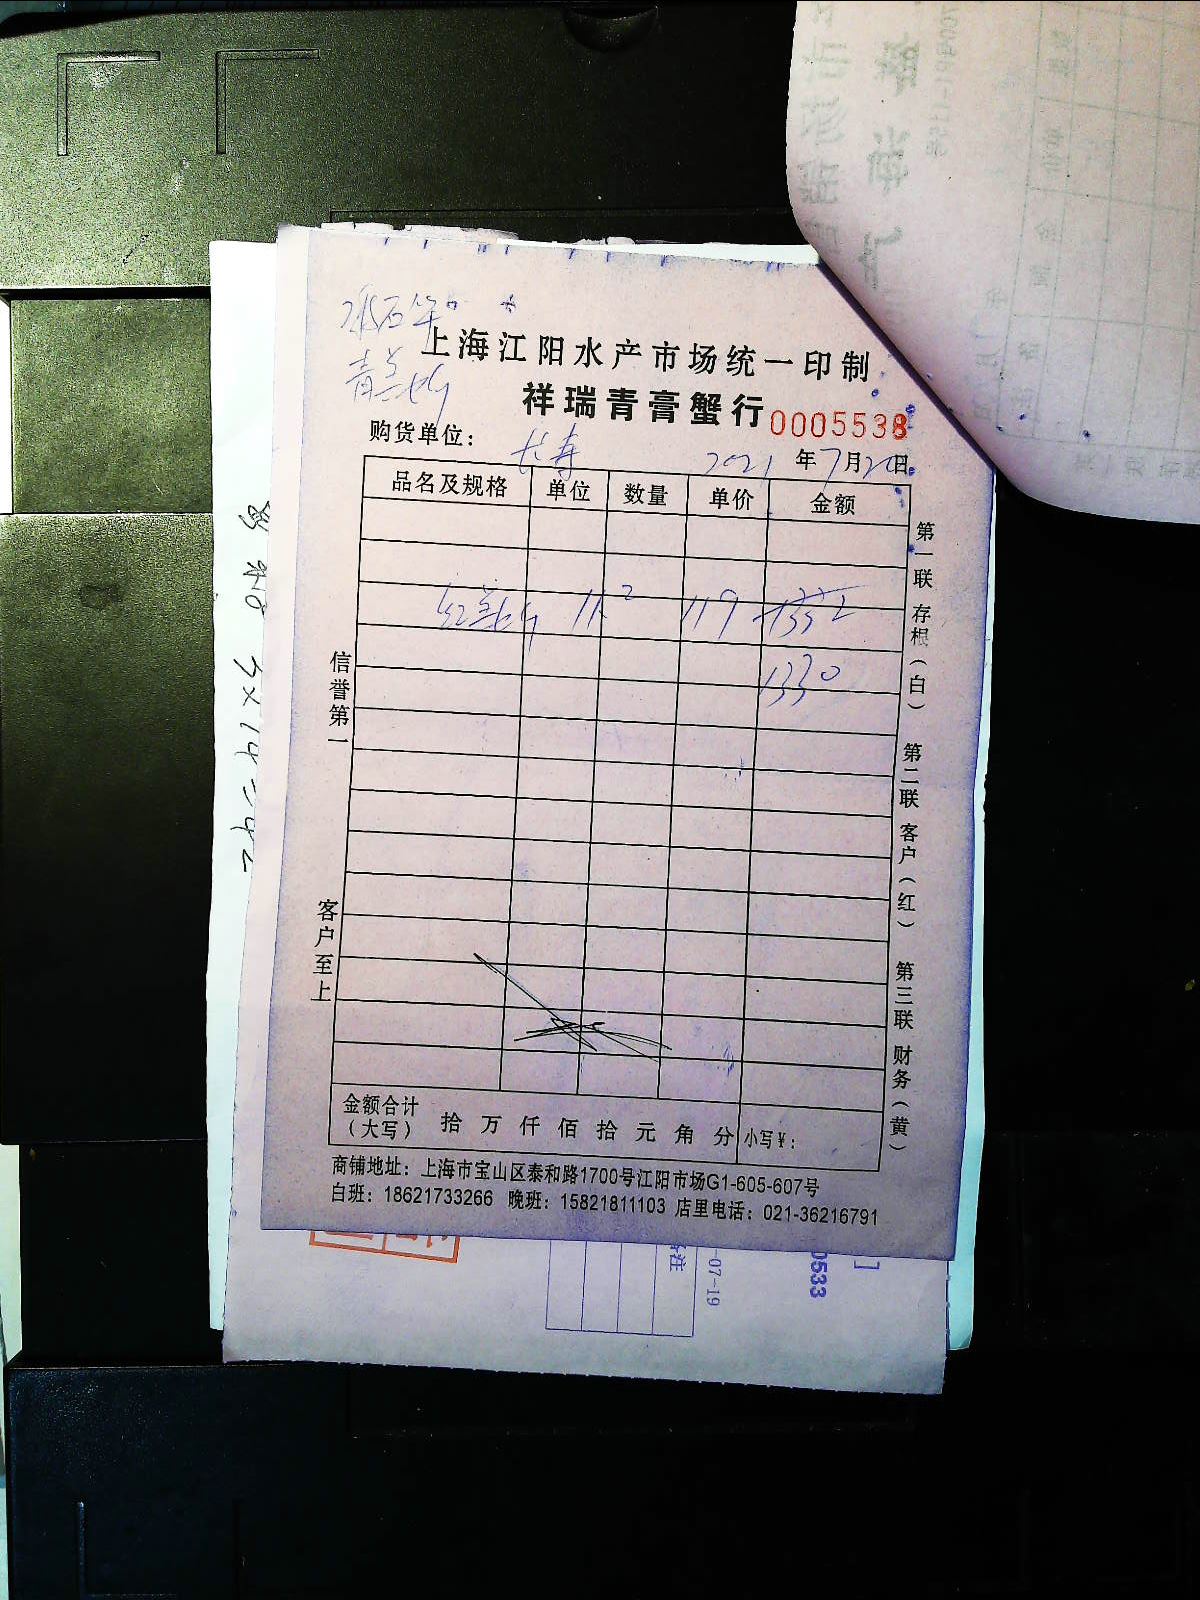 上海江阳水产市场统一印制
祥瑞青膏蟹行 0005538
购货单位: 长寿 2021年7月20日
品名及规格 单位 数量 单价 金额
11² 119 1332
1330
信誉第一
客户至上
第一联 存根(白)
第二联 客户(红)
第三联 财务(黄)
金额合计(大写) 拾 万 仟 佰 拾 元 角 分 小写¥:
商铺地址: 上海市宝山区泰和路1700号江阳市场G1-605-607号
白班: 18621733266 晚班: 15821811103 店里电话: 021-36216791
3×14=42
备注
-07-19
0533